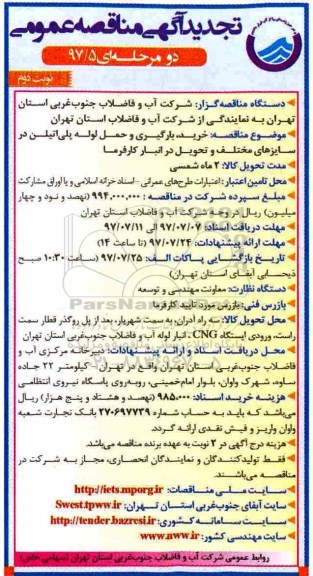 تجدیدآگهی مناقصه عمومی
دو مرحله‌ای ۹۷/۵
نوبت دوم
دستگاه مناقصه‌گزار: شرکت آب و فاضلاب جنوب‌غربی استان
تهران به نمایندگی از شرکت آب و فاضلاب استان تهران
موضوع مناقصه: خرید، بارگیری و حمل لوله پلی‌اتیلن در
سایزهای مختلف و تحویل در انبار کارفرما
مدت تحویل کالا: ۲ ماه شمسی
محل تامین اعتبار: اعتبارات طرح‌های عمرانی - اسناد خزانه اسلامی و یا اوراق مشارکت
مبلغ سپرده شرکت در مناقصه: ۹۹۴,۰۰۰,۰۰۰ (نهصد و نود و چهار
میلیون) ریال در وجه شرکت آب و فاضلاب استان تهران
مهلت دریافت اسناد: ۹۷/۰۷/۰۷ الی ۹۷/۰۷/۱۱
مهلت ارائه پیشنهادات: ۹۷/۰۷/۲۴ (تا ساعت ۱۴)
تاریخ بازگشایی پاکات الف: ۹۷/۰۷/۲۵ (ساعت ۱۰:۳۰ صبح
ذیحسابی آبفای استان تهران)
دستگاه نظارت: معاونت مهندسی و توسعه
بازرس فنی: بازرس مورد تایید کارفرما
محل تحویل کالا: سه راه آدران، به سمت شهریار، بعد از پل روگذر قطار سمت
راست، ورودی ایستگاه CNG، انبار لوله آب و فاضلاب جنوب‌غربی استان تهران
محل دریافت اسناد و ارائه پیشنهادات: دبیرخانه مرکزی آب و
فاضلاب جنوب‌غربی استان تهران واقع در تهران - کیلومتر ۲۲ جاده
ساوه، شهرک واوان، بلوار امام‌خمینی، روبه‌روی پاسگاه نیروی انتظامی
هزینه خرید اسناد: ۹۸۵,۰۰۰ (نهصد و هشتاد و پنج هزار) ریال
می‌باشد که باید به حساب شماره ۲۷۰۶۹۷۷۳۹ بانک تجارت شعبه
واوان واریز و فیش نقدی ارائه گردد.
هزینه درج آگهی در ۲ نوبت به عهده برنده مناقصه می‌باشد.
فقط تولیدکنندگان و نمایندگان انحصاری، مجاز به شرکت در
مناقصه می‌باشند.
سایت ملی مناقصات: http://iets.mporg.ir
سایت آبفای جنوب‌غربی استان تهران: Swest.tpww.ir
سایت سامانه کشوری: http://tender.bazresi.ir
سایت مهندسی کشور: www.nww.ir
روابط عمومی شرکت آب و فاضلاب جنوب‌غربی استان تهران (سهامی خاص)